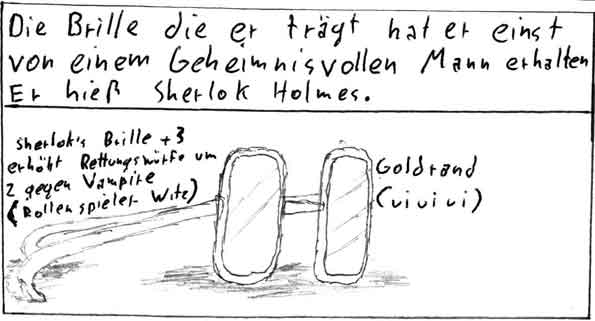 Die Brille die er trägt hat er einst
von einem Geheimnisvollen Mann erhalten
Er hieß Sherlok Holmes.
Sherlok's Brille +3
erhöht Rettungswürfe um
2 gegen Vampire
(Rollenspieler Witz)
Goldrand
(ui ui ui)